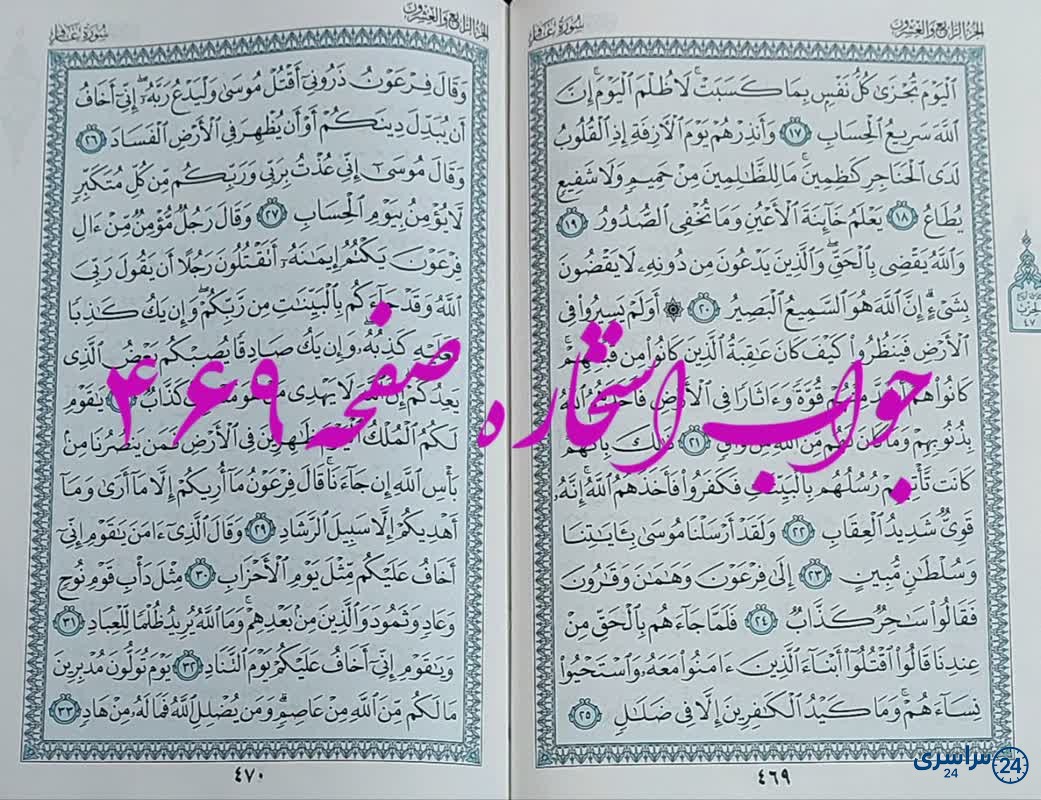 الجزء الرابع والعشرون
سورة غافر
ٱلۡيَوۡمَ تُجۡزَىٰ كُلُّ نَفۡسِۭ بِمَا كَسَبَتۡۚ لَا ظُلۡمَ ٱلۡيَوۡمَۚ إِنَّ
ٱللَّهَ سَرِيعُ ٱلۡحِسَابِ ١٧ وَأَنذِرۡهُمۡ يَوۡمَ ٱلۡأٓزِفَةِ إِذِ ٱلۡقُلُوبُ
لَدَى ٱلۡحَنَاجِرِ كَٰظِمِينَۚ مَا لِلظَّٰلِمِينَ مِنۡ حَمِيمٖ وَلَا شَفِيعٖ
يُطَاعُ ١٨ يَعۡلَمُ خَآئِنَةَ ٱلۡأَعۡيُنِ وَمَا تُخۡفِي ٱلصُّدُورُ ١٩
وَٱللَّهُ يَقۡضِي بِٱلۡحَقِّۖ وَٱلَّذِينَ يَدۡعُونَ مِن دُونِهِۦ لَا يَقۡضُونَ
بِشَيۡءٍۗ إِنَّ ٱللَّهَ هُوَ ٱلسَّمِيعُ ٱلۡبَصِيرُ ٢٠ ۞ أَوَلَمۡ يَسِيرُواْ فِي
ٱلۡأَرۡضِ فَيَنظُرُواْ كَيۡفَ كَانَ عَٰقِبَةُ ٱلَّذِينَ كَانُواْ مِن قَبۡلِهِمۡۚ
كَانُواْ هُمۡ أَشَدَّ مِنۡهُمۡ قُوَّةٗ وَءَاثَارٗا فِي ٱلۡأَرۡضِ فَأَخَذَهُمُ ٱللَّهُ
بِذُنُوبِهِمۡ وَمَا كَانَ لَهُم مِّنَ ٱللَّهِ مِن وَاقٖ ٢١ ذَٰلِكَ بِأَنَّهُمۡ
كَانَت تَّأۡتِيهِمۡ رُسُلُهُم بِٱلۡبَيِّنَٰتِ فَكَفَرُواْ فَأَخَذَهُمُ ٱللَّهُۚ إِنَّهُۥ
قَوِيّٞ شَدِيدُ ٱلۡعِقَابِ ٢٢ وَلَقَدۡ أَرۡسَلۡنَا مُوسَىٰ بِـَٔايَٰتِنَا
وَسُلۡطَٰنٖ مُّبِينٍ ٢٣ إِلَىٰ فِرۡعَوۡنَ وَهَٰمَٰنَ وَقَٰرُونَ
فَقَالُواْ سَٰحِرٞ كَذَّابٞ ٢٤ فَلَمَّا جَآءَهُم بِٱلۡحَقِّ مِنۡ
عِندِنَا قَالُواْ ٱقۡتُلُوٓاْ أَبۡنَآءَ ٱلَّذِينَ ءَامَنُواْ مَعَهُۥ وَٱسۡتَحۡيُواْ
نِسَآءَهُمۡۚ وَمَا كَيۡدُ ٱلۡكَٰفِرِينَ إِلَّا فِي ضَلَٰلٖ ٢٥
٤٦٩
الجزء الرابع والعشرون
سورة غافر
وَقَالَ فِرۡعَوۡنُ ذَرُونِيٓ أَقۡتُلۡ مُوسَىٰ وَلۡيَدۡعُ رَبَّهُۥٓۖ إِنِّيٓ أَخَافُ
أَن يُبَدِّلَ دِينَكُمۡ أَوۡ أَن يُظۡهِرَ فِي ٱلۡأَرۡضِ ٱلۡفَسَادَ ٢٦
وَقَالَ مُوسَىٰٓ إِنِّي عُذۡتُ بِرَبِّي وَرَبِّكُم مِّن كُلِّ مُتَكَبِّرٖ
لَّا يُؤۡمِنُ بِيَوۡمِ ٱلۡحِسَابِ ٢٧ وَقَالَ رَجُلٞ مُّؤۡمِنٞ مِّنۡ ءَالِ
فِرۡعَوۡنَ يَكۡتُمُ إِيمَٰنَهُۥٓ أَتَقۡتُلُونَ رَجُلًا أَن يَقُولَ رَبِّيَ
ٱللَّهُ وَقَدۡ جَآءَكُم بِٱلۡبَيِّنَٰتِ مِن رَّبِّكُمۡۖ وَإِن يَكُ كَٰذِبٗا
فَعَلَيۡهِ كَذِبُهُۥۖ وَإِن يَكُ صَادِقٗا يُصِبۡكُم بَعۡضُ ٱلَّذِي
يَعِدُكُمۡۖ إِنَّ ٱللَّهَ لَا يَهۡدِي مَنۡ هُوَ مُسۡرِفٞ كَذَّابٞ ٢٨ يَٰقَوۡمِ
لَكُمُ ٱلۡمُلۡكُ ٱلۡيَوۡمَ ظَٰهِرِينَ فِي ٱلۡأَرۡضِ فَمَن يَنصُرُنَا مِنۢ
بَأۡسِ ٱللَّهِ إِن جَآءَنَاۚ قَالَ فِرۡعَوۡنُ مَآ أُرِيكُمۡ إِلَّا مَآ أَرَىٰ وَمَآ
أَهۡدِيكُمۡ إِلَّا سَبِيلَ ٱلرَّشَادِ ٢٩ وَقَالَ ٱلَّذِيٓ ءَامَنَ يَٰقَوۡمِ إِنِّيٓ
أَخَافُ عَلَيۡكُم مِّثۡلَ يَوۡمِ ٱلۡأَحۡزَابِ ٣٠ مِثۡلَ دَأۡبِ قَوۡمِ نُوحٖ
وَعَادٖ وَثَمُودَ وَٱلَّذِينَ مِنۢ بَعۡدِهِمۡۚ وَمَا ٱللَّهُ يُرِيدُ ظُلۡمٗا لِّلۡعِبَادِ ٣١
وَيَٰقَوۡمِ إِنِّيٓ أَخَافُ عَلَيۡكُمۡ يَوۡمَ ٱلتَّنَادِ ٣٢ يَوۡمَ تُوَلُّونَ مُدۡبِرِينَ
مَا لَكُم مِّنَ ٱللَّهِ مِنۡ عَاصِمٖۗ وَمَن يُضۡلِلِ ٱللَّهُ فَمَا لَهُۥ مِنۡ هَادٖ ٣٣
٤٧٠
جواب استخاره صفحه ۴۶۹
سراسری 24
24